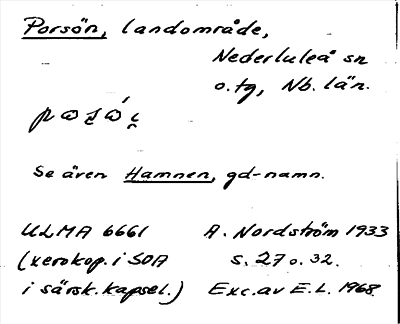 Porsön, landområde,
Nederluleå sn
o. tg, Nb. län.
Se även Hamnen, gd-namn.
ULMA 6661 A. Nordström 1933
(xerokop. i SOA s. 27 o. 32.
i särsk. kapsel.) Exc. av E.L. 1968.